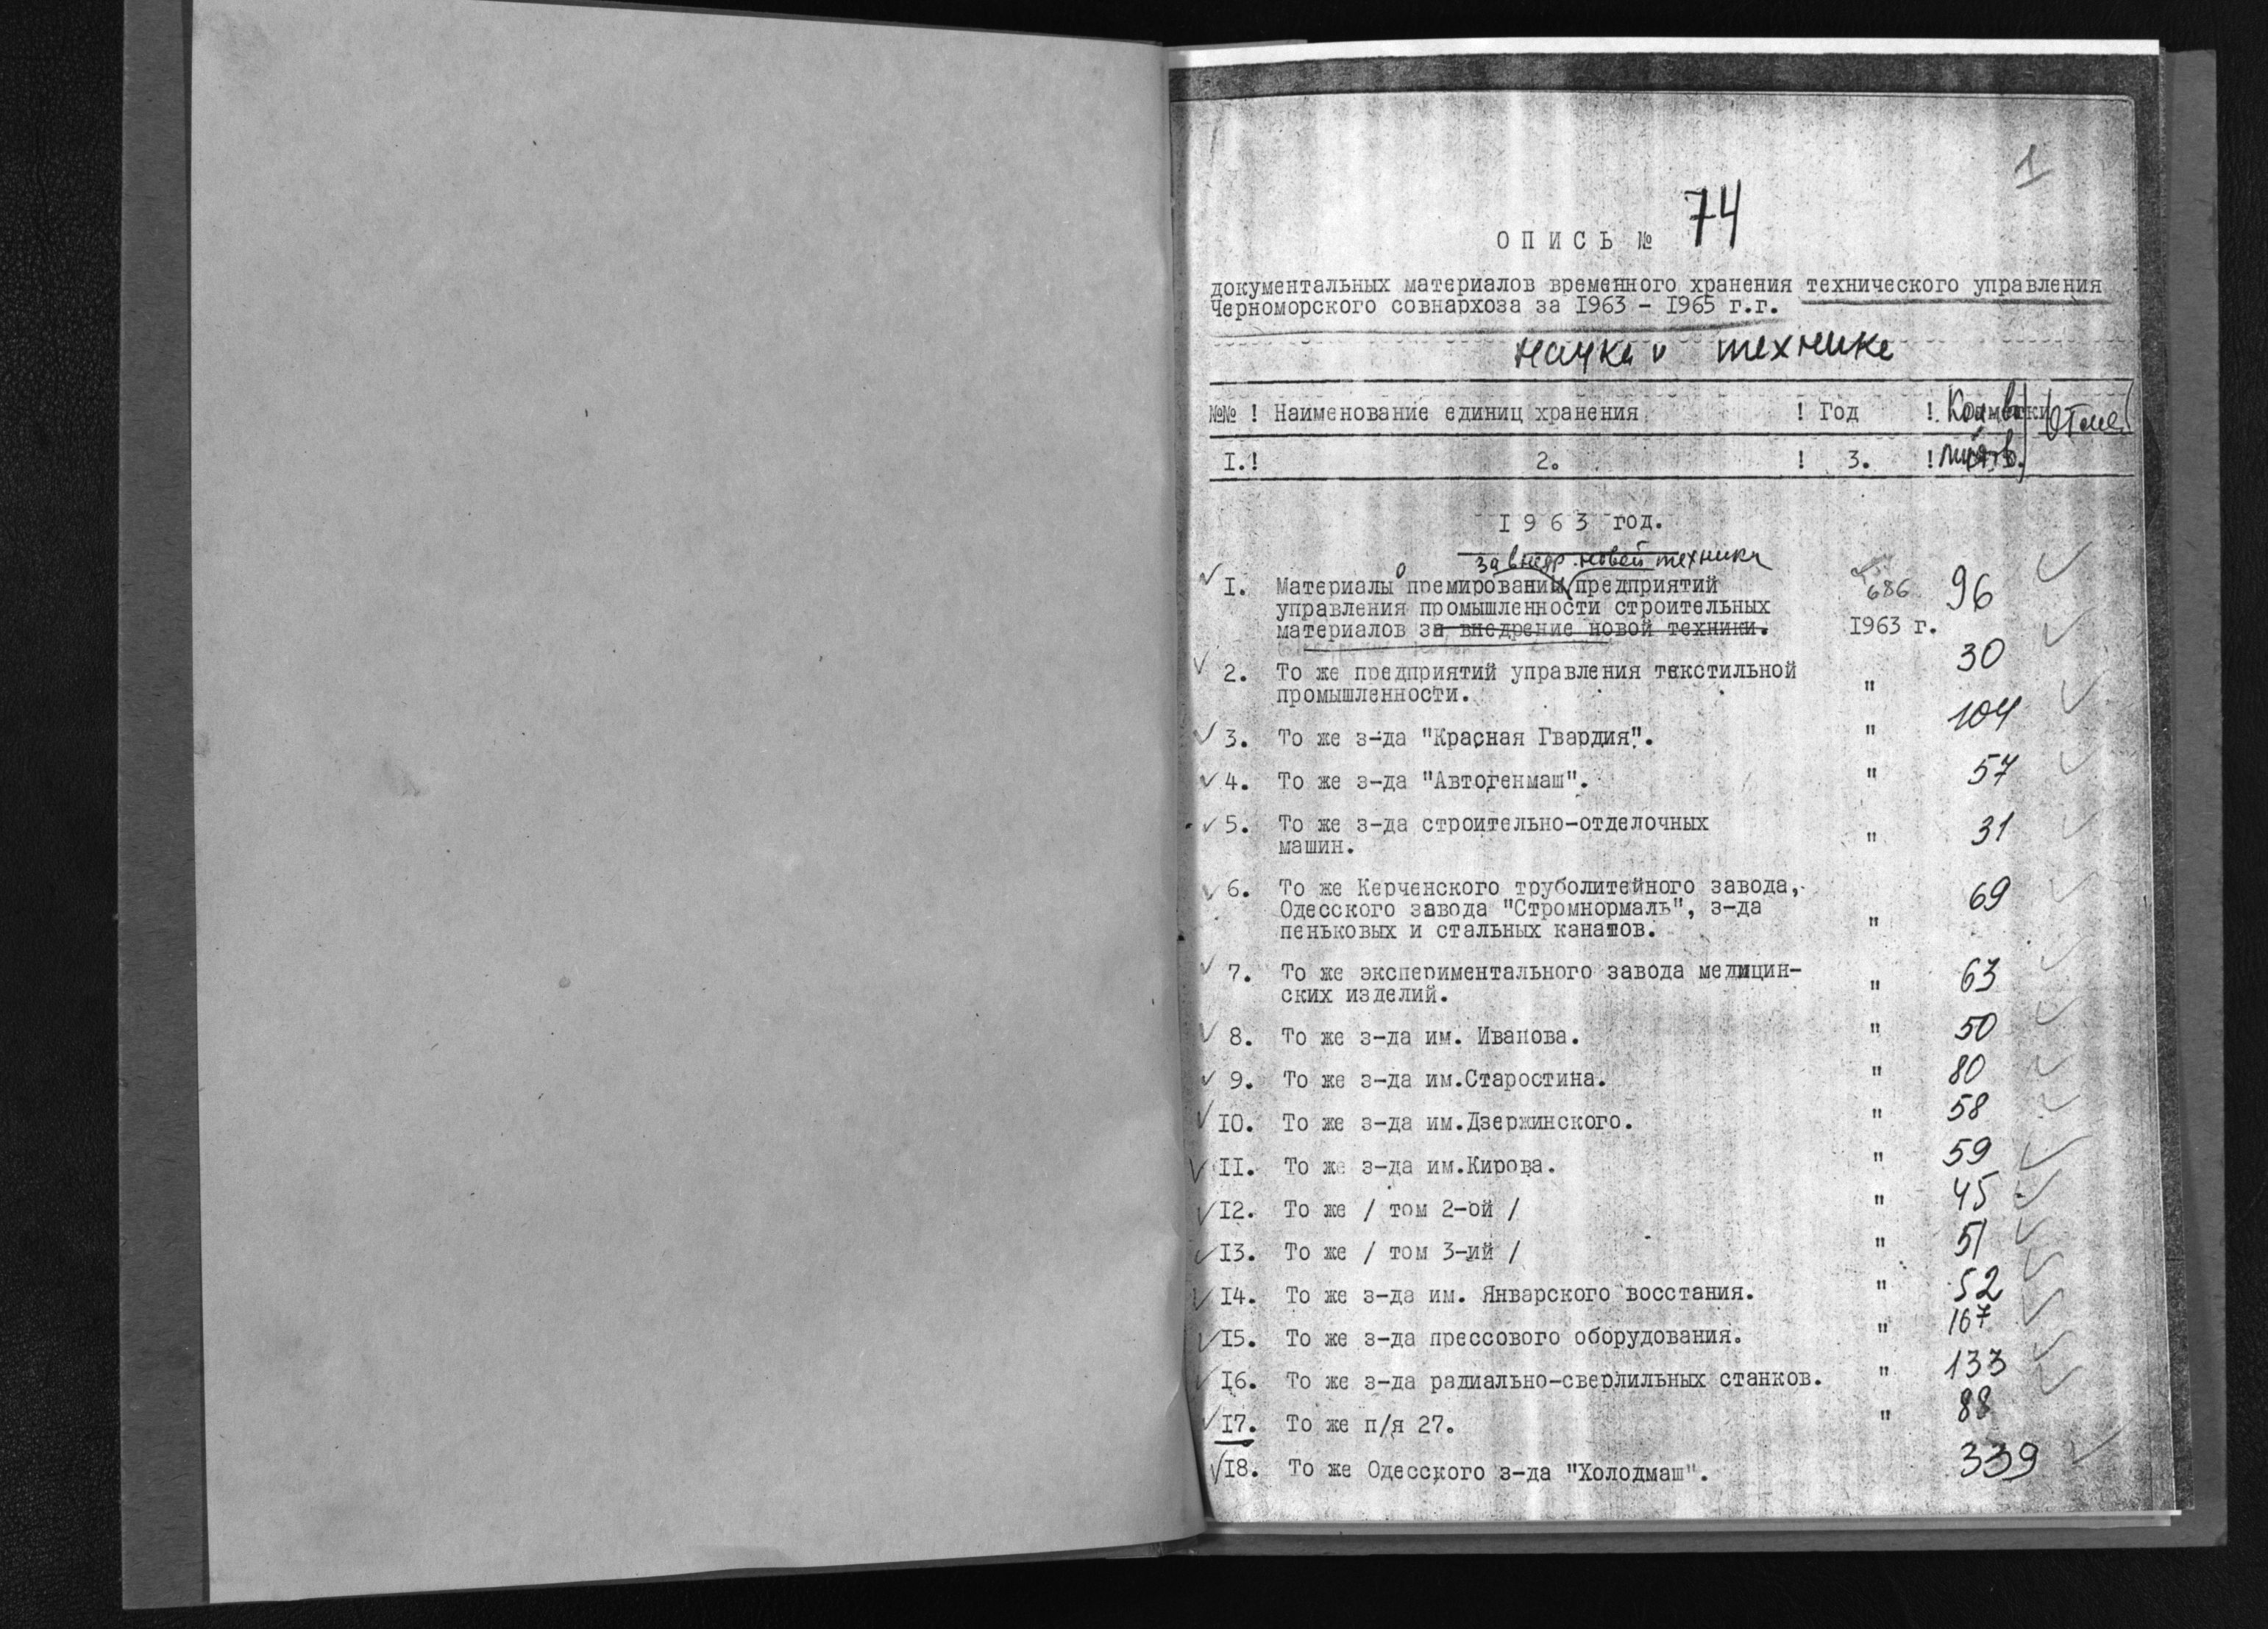 1
ОПИСЬ № 74
документальных материалов временного хранения технического управления
Черноморского совнархоза за I963 - I965 г.г.
наука и техника
№№ ! Наименование единиц хранения ! Год ! Кол-во Отме
I. ! 2. ! 3. ! листов.
I 9 6 3 год.
за внедр. новой техники
I. Материалы о премировании предприятий 686 96
управления промышленности строительных
материалов за внедрение новой техники. I963 г.
2. То же предприятий управления текстильной 30
промышленности. "
3. То же з-да "Красная Гвардия". " 104
4. То же з-да "Автогенмаш". " 57
5. То же з-да строительно-отделочных 31
машин. "
6. То же Керченского труболитейного завода, 69
Одесского завода "Стромнормаль", з-да
пеньковых и стальных канатов. "
7. То же экспериментального завода медицин- 63
ских изделий. "
8. То же з-да им. Иванова. " 50
9. То же з-да им.Старостина. " 80
IO. То же з-да им.Дзержинского. " 58
II. То же з-да им.Кирова. " 59
I2. То же / том 2-ой / " 45
I3. То же / том 3-ий / " 51
I4. То же з-да им. Январского восстания. " 52
I5. То же з-да прессового оборудования. " 167
I6. То же з-да радиально-сверлильных станков. " 133
I7. То же п/я 27. " 88
I8. То же Одесского з-да "Холодмаш". 339